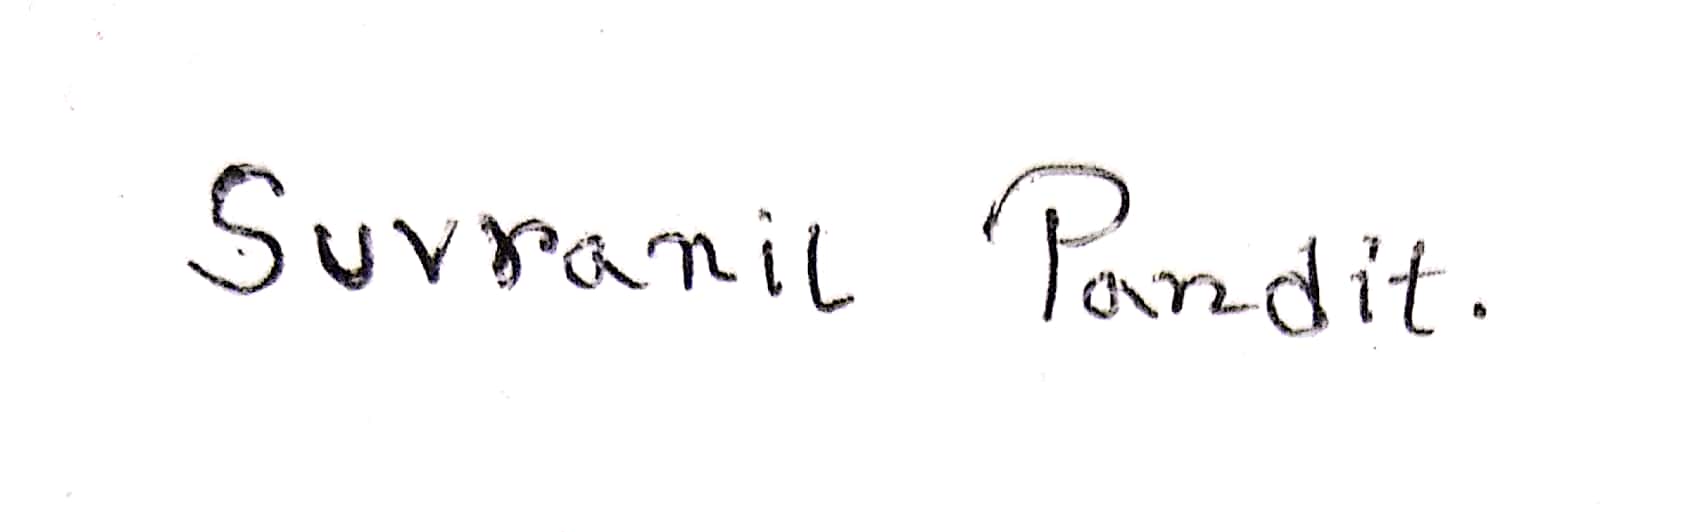 Suvranil Pandit.